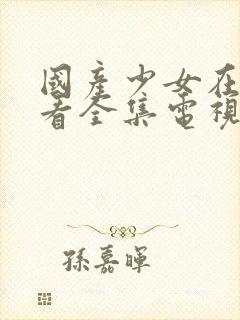 國產少女在
看全集電視
孫嘉暉